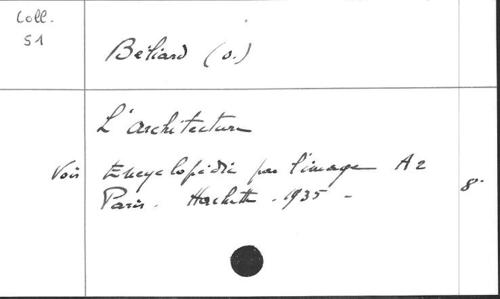 Coll.
51
Béliard (O.)
L'architecture
Voir Encyclopédie par l'image A2
Paris. Hachette. 1935 - 8°